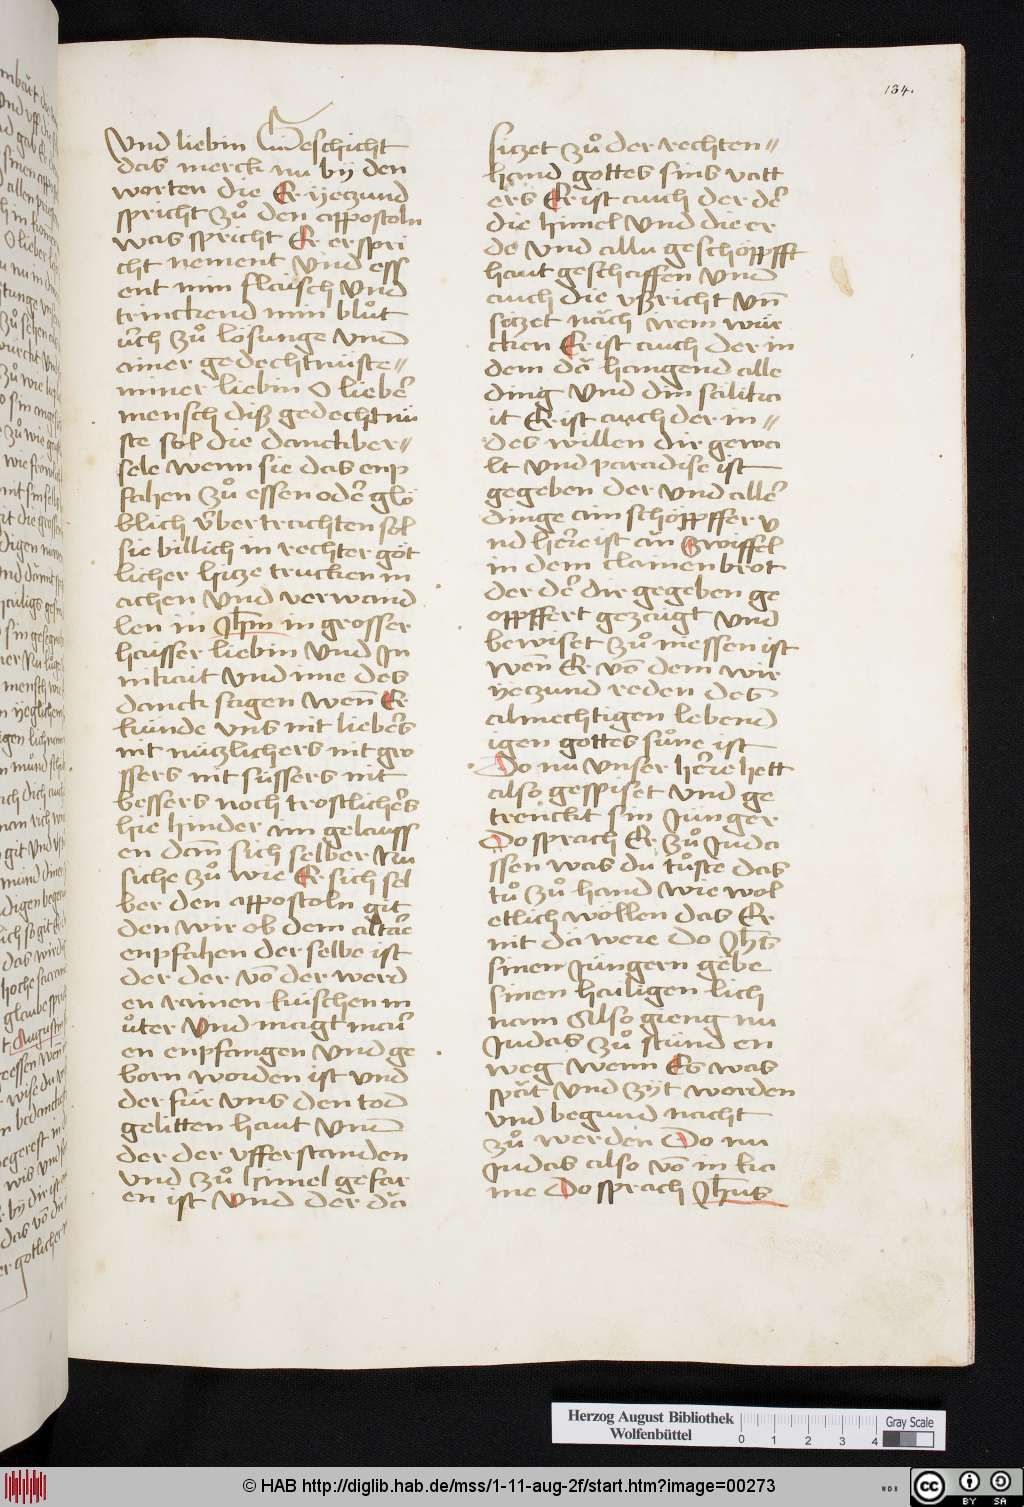 134.
Vnd liebin Vnd geschicht
das merck nu by den
worten die Er yeczund
spricht zuͦ den appostoln
was spricht Er er spri
cht nement Vnd ess
ent min flaisch Vnd
trinckend min bluͦt
v́ch zuͦ lösunge vnd
ainer gedechtnüste//
miner liebin O lieber
mensch diß gedechtnü
ste sol die danckber//
sele wenn sie das enp
fahen zuͦ essen oder glö
blich v́bertrachten sol
sie billich in rechter göt
licher hicze trucken in
achen Vnd verwand
len in Jhm in grosser
haisser liebin Vnd In
nikait Vnd ime des
danck sagen wenn̄ Er
kunde vns nit liebers
nit nüczlichers nit gro
ssers nit süssers nit
bessers noch trostlichers
hie hinder im gelauss
en dan̄ sich selber Nu
siche zuͦ wie Er sich sel
ber den appostoln git
den wir ob dem altar
enpfahen der selbe ist
der der vō der werd
en rainen küschen m
uͦter Vnd magt mari
en enpfangen Vnd ge
born worden ist vnd
der für vns den tod
gelitten haut Vnd
der der vfferstanden
vnd zuͦ himel gefar
en ist Vnd der dā
siczet zuͦ der rechten//
hand gottes sins vatt
ers Er ist auch der der
die himel Vnd die er
de vnd allu geschöppfft
haut geschaffen Vnd
auch die vßricht vn̄
seczet nāch irem wür
cken Er ist auch der in
dem dā hangend alle
ding Vnd din sälika
it Er ist auch der in//
des willen dir gewa
lt vnd paradise ist
gegeben der vnd aller
dinge ain schöppffer v
nd herre ist ān zwiffel
in dem clainen brot
der der dir gegeben ge
oppffert gezaugt vnd
bewiset zuͦ niessen ist
wen̄ Er vō dem wir
yeczund reden des
almechtigen lebend
igen gottes suͦne ist
Do nu vnser herre hett
also gespiset vnd ge
trenckt sin Jünger
Do sprach Er zuͦ Juda
ssen was du tuͦste das
tuͦ zuͦ hand wie wol
etlich wöllen das Er
nit dā were do Jhs
sinen Jüngern gebe
sinen hailigen lich
nam Also gieng nu
Judas zuͦ stund en
weg wenn Es was
spāt Vnd zyt worden
vnd begund nacht
zuͦ werden Do nu
Judas also vō in ka
me Do sprach Jhus
Herzog August Bibliothek
Wolfenbüttel
0 1 2 3 4
Gray Scale
© HAB http://diglib.hab.de/mss/1-11-aug-2f/start.htm?image=00273
WDB
cc BY SA